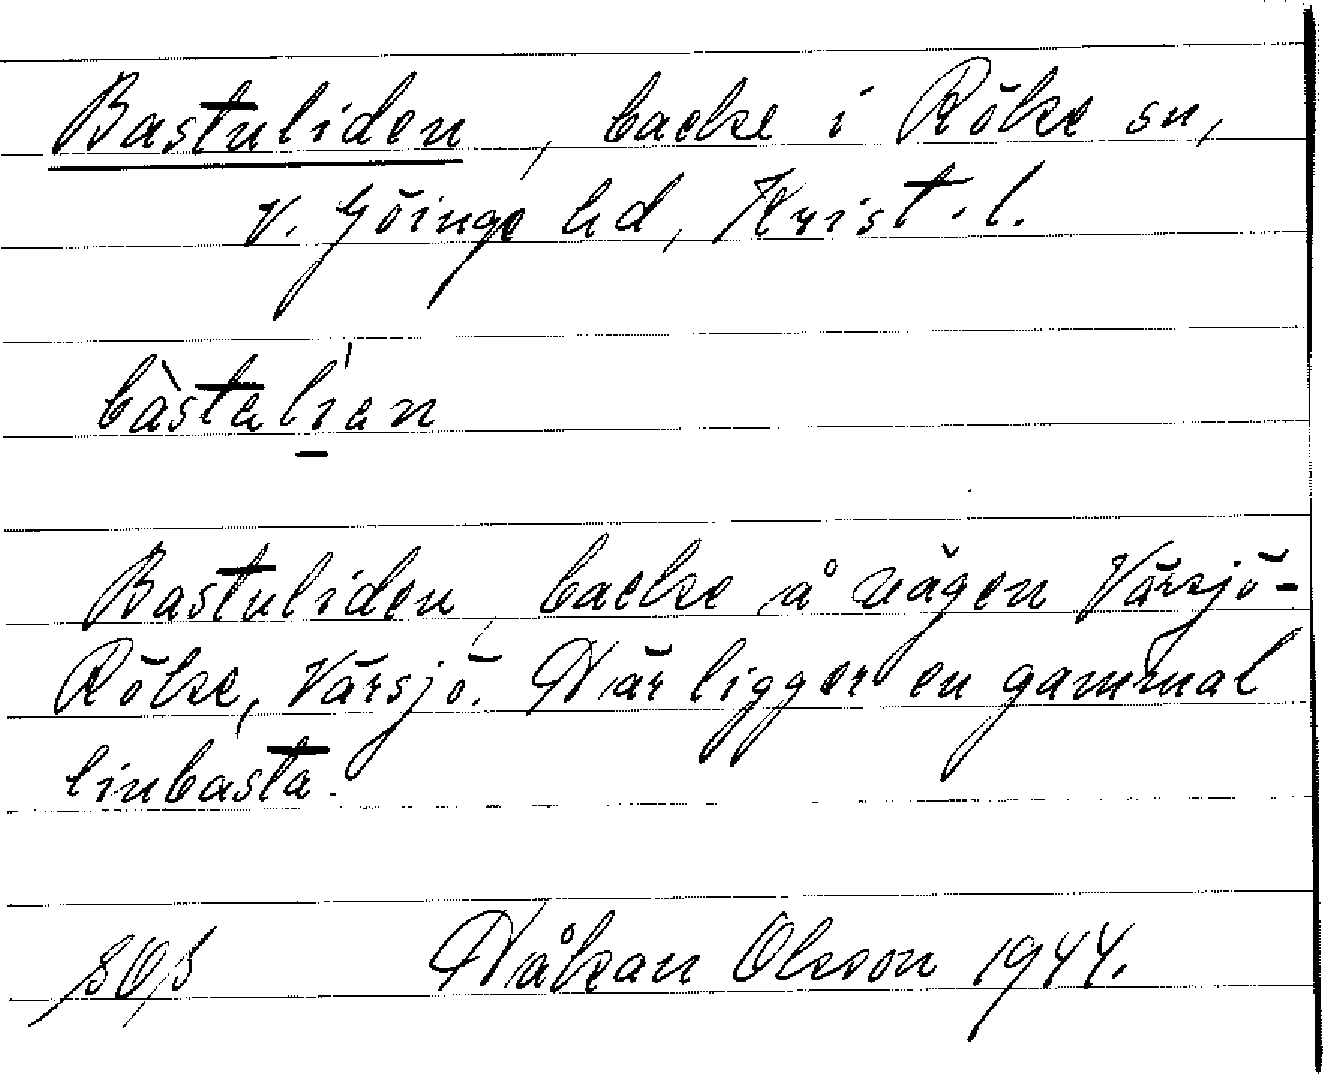 Bastuliden, backe i Röke sn,
V. Göinge hd, Krist. l.
bàstalían
Bastuliden, backe å vägen Värsjö-
Röke, Värsjö. Här ligger en gammal
linbasta.
Håkan Olsson 1944.